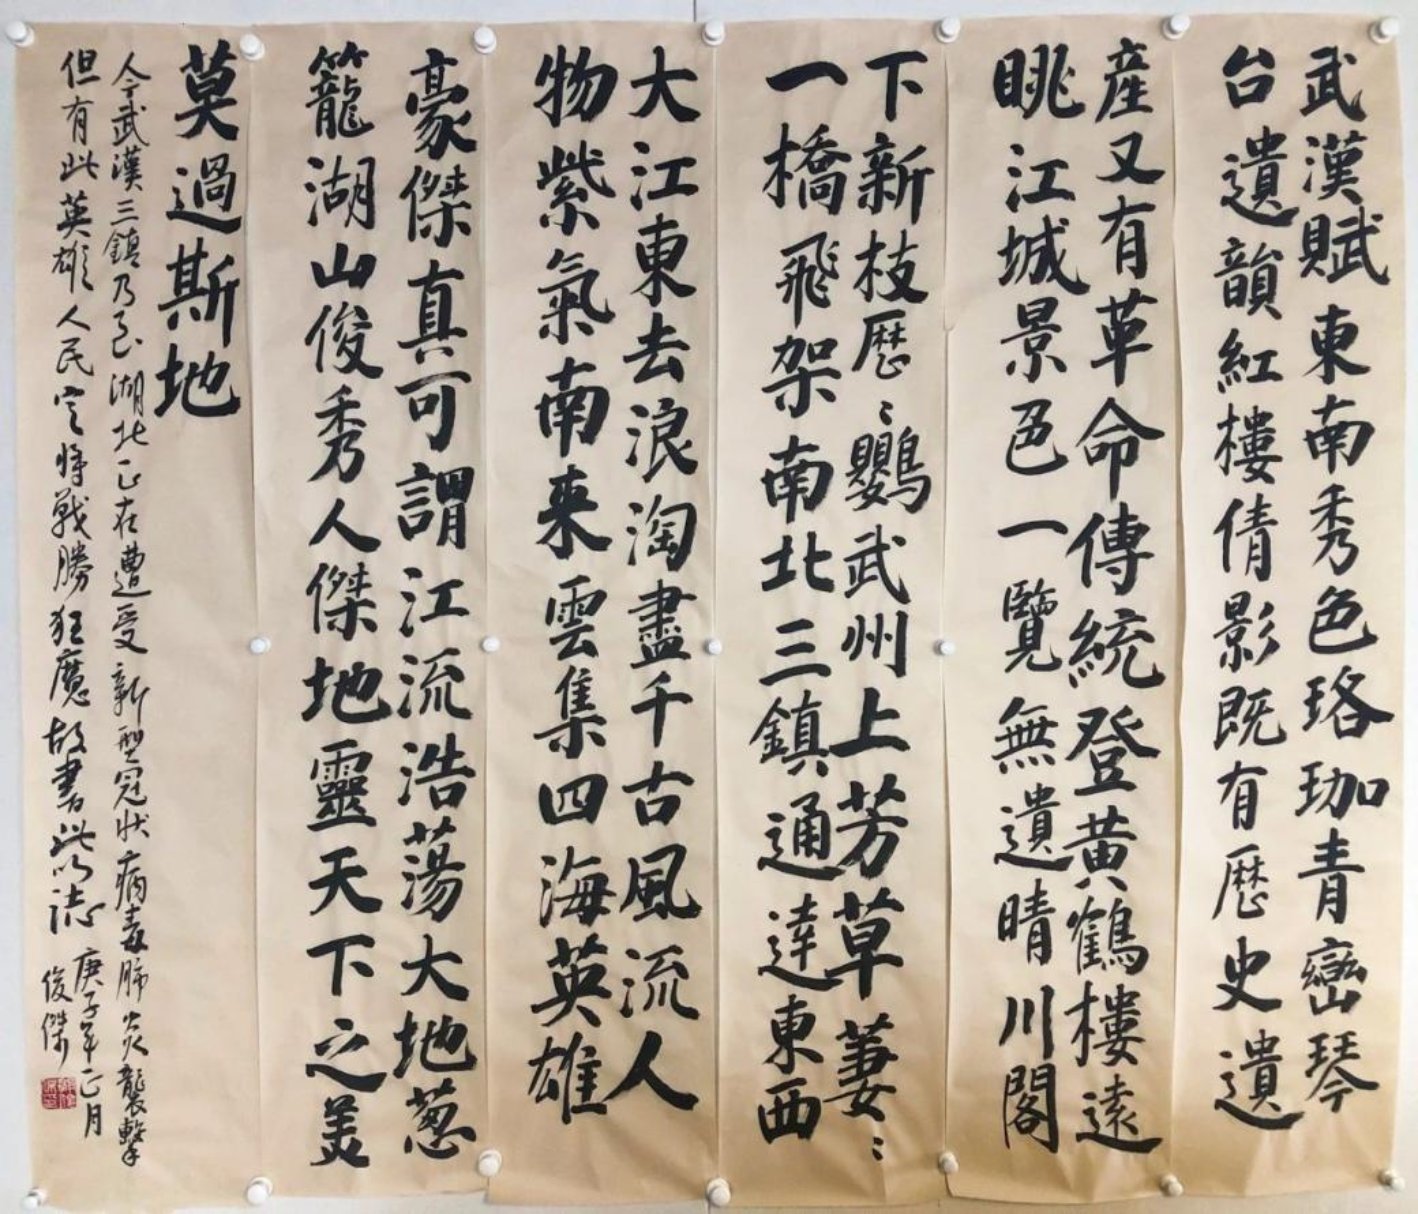 武漢賦東南秀色珞珈青巒琴
台遺韻紅樓倩影既有歷史遺
產又有革命傳統登黃鶴樓遠
眺江城景色一覽無遺晴川閣
下新枝歷〻鸚武州上芳草萋〻
一橋飛架南北三鎮通達東西
大江東去浪淘盡千古風流人
物紫氣南来雲集四海英雄
豪傑真可謂江流浩蕩大地蔥
籠湖山俊秀人傑地靈天下之美
莫過斯地
今武漢三鎮乃至湖北正在遭受新型冠狀病毒肺炎襲擊
但有此英雄人民定将戰勝狂魔故書此以誌 庚子年正月
俊傑